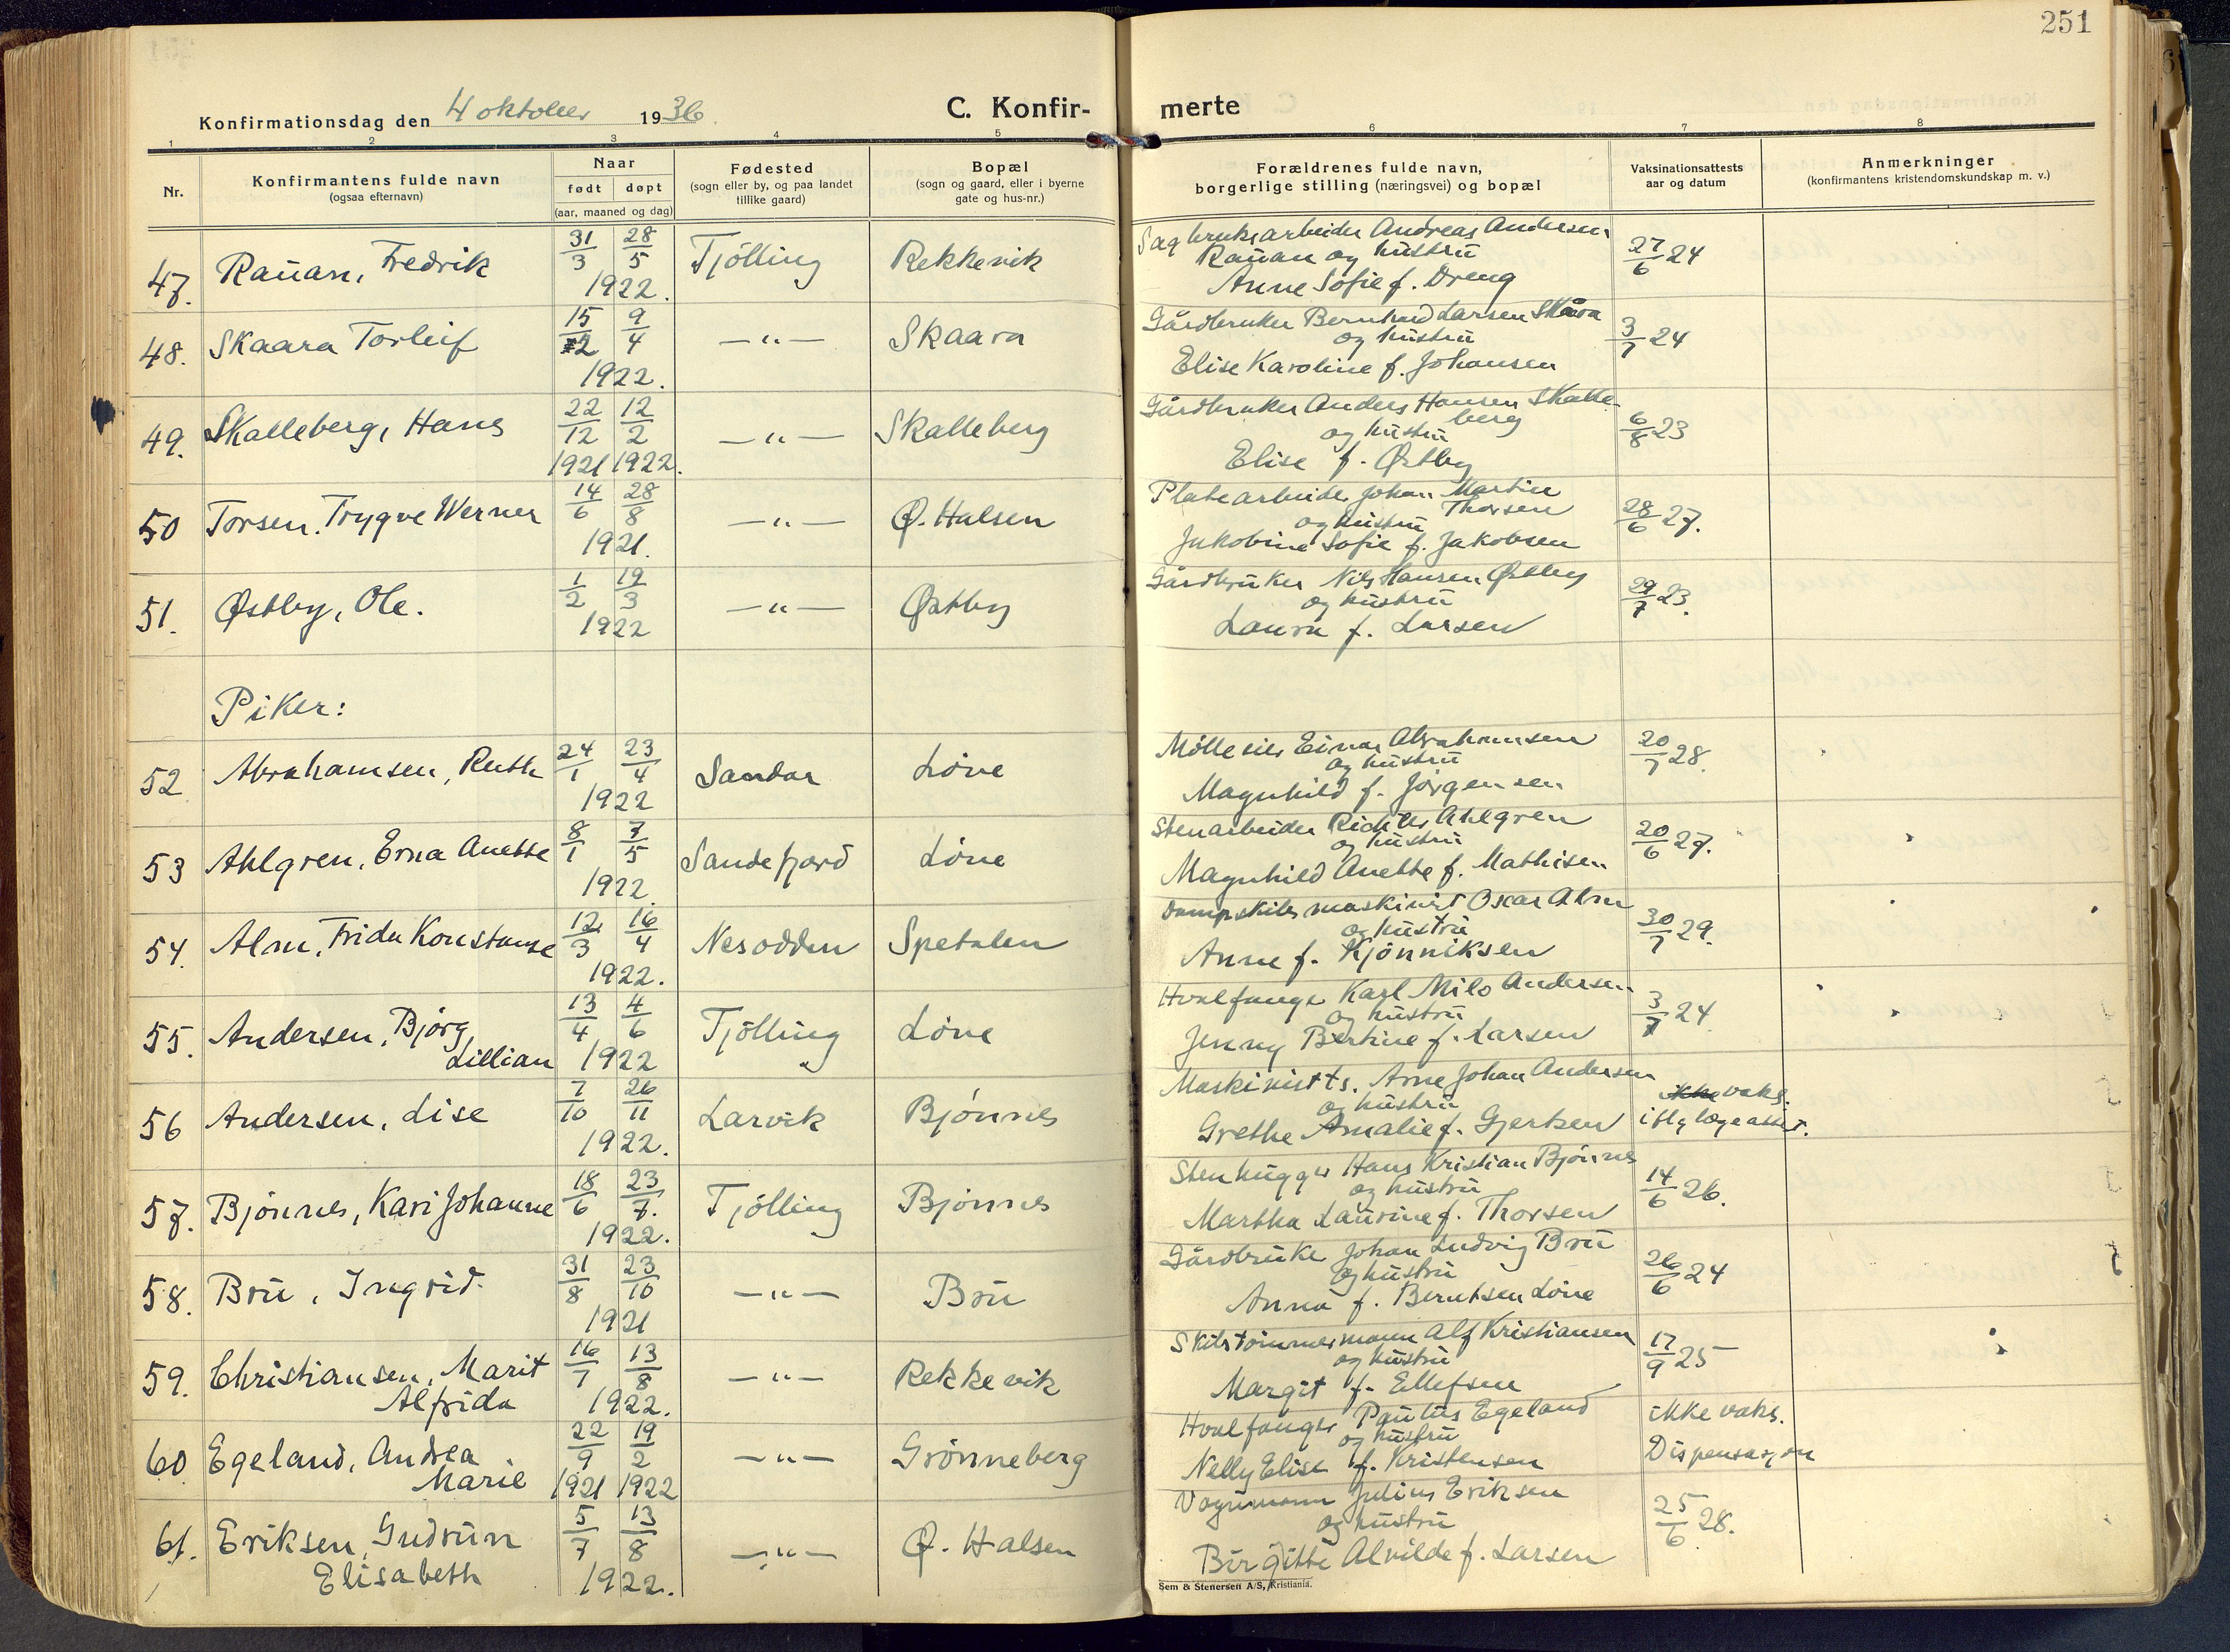 251
Konfirmationsdag den 4 oktober 1936.
C. Konfirmerte
1 2 3 4 5 6 7 8
Nr.
Konfirmantens fulde navn
(ogsaa efternavn)
Naar
født døpt
(aar, maaned og dag)
Fødested
(sogn eller by, og paa landet
tillike gaard)
Bopæl
(sogn og gaard, eller i byerne
gate og hus-nr.)
Forældrenes fulde navn,
borgerlige stilling (næringsvei) og bopæl
Vaksinationsattests
aar og datum
Anmerkninger
(konfirmantens kristendomskundskap m. v.)
47. Rauan, Fredrik 31/3 28/5 1922. Tjölling Rekkevik
Sagbruksarbeider Andreas Andersen
Rauan og hustru
Anne Sofie f. Dreng
27/6 24
48. Skaara Torleif 15/2 9/4 1922. —"— Skaara
Gårdbruker Bernhard Larsen Skåra
og hustru
Elise Karoline f. Johansen
3/7 24
49. Skalleberg, Hans 22/12 1921 12/2 1922. —"— Skalleberg
Gårdbruker Anders Hansen Skalle-
berg
og hustru
Elise f. Østby
6/8 23
50 Torsen, Trygve Werner 14/6 28/8 1921. —"— Ø. Halsen
Platearbeider Johan Martin
Thorsen
og hustru
Jakobine Sofie f. Jakobsen
28/6 27.
51. Østby, Ole. 1/2 19/3 1922 —"— Østby
Gårdbruker Nils Hansen Østby
og hustru
Laura f. Larsen
29/7 23.
Piker:
52 Abrahamsen, Ruth 24/1 23/4 1922 Sandar Löve
Mölleeier Einar Abrahamsen
og hustru
Magnhild f. Jörgensen
20/7 28.
53 Ahlgren, Erna Anette 8/1 7/5 1922. Sandefjord Löve
Stenarbeider Richter Ahlgren
og hustru
Magnhild Anette f. Mathisen
20/6 27.
54. Alm, Frida Konstanse 12/3 16/4 1922. Nesodden Spetalen
Dampskibsmaskinist Oscar Alm
og hustru
Anne f. Kjönniksen
30/7 29.
55. Andersen, Bjørg
Lillian 13/4 4/6 1922 Tjölling Löve
Hvalfanger Karl Milo Andersen
og hustru
Jenny Bertine f. Larsen
3/7 24
56 Andersen, Lise 7/10 26/11 1922. Larvik Bjönnes
Maskinist ts. Arne Johan Andersen
og hustru
Grethe Amalie f. Gjertsen
ikke vaks.
iflg lægeattest.
57. Bjönnes, Kari Johanne 18/6 23/7. 1922. Tjölling Bjönnes
Stenhugger Hans Kristian Bjönnes
og hustru
Martha Laurine f. Thorsen
14/6 26.
58. Bru, Ingrid. 31/8 23/10 1921 —"— Bru
Gårdbruker Johan Ludvig Bru
og hustru
Anna f. Berntsen Löve
26/6 24
59. Christiansen, Marit
Alfrida 16/7 13/8 1922. —"— Rekkevik
Skibstömmermann Alf Kristiansen
og hustru
Margit f. Ellefsen
17/9 25
60 Egeland, Andrea
Marie 22/9 1921 19/2 1922 —"— Grönneberg
Hvalfanger Paulus Egeland
og hustru
Nelly Elise f. Kristensen
ikke vaks.
Dispensasjon
61. Eriksen, Gudrun
Elisabeth 5/7 13/8 1922. —"— Ø. Halsen
Vognmann Julius Eriksen
og hustru
Birgitte Alvilde f. Larsen
25/6 28.
Sem & Stenersen A/S, Kristiania.